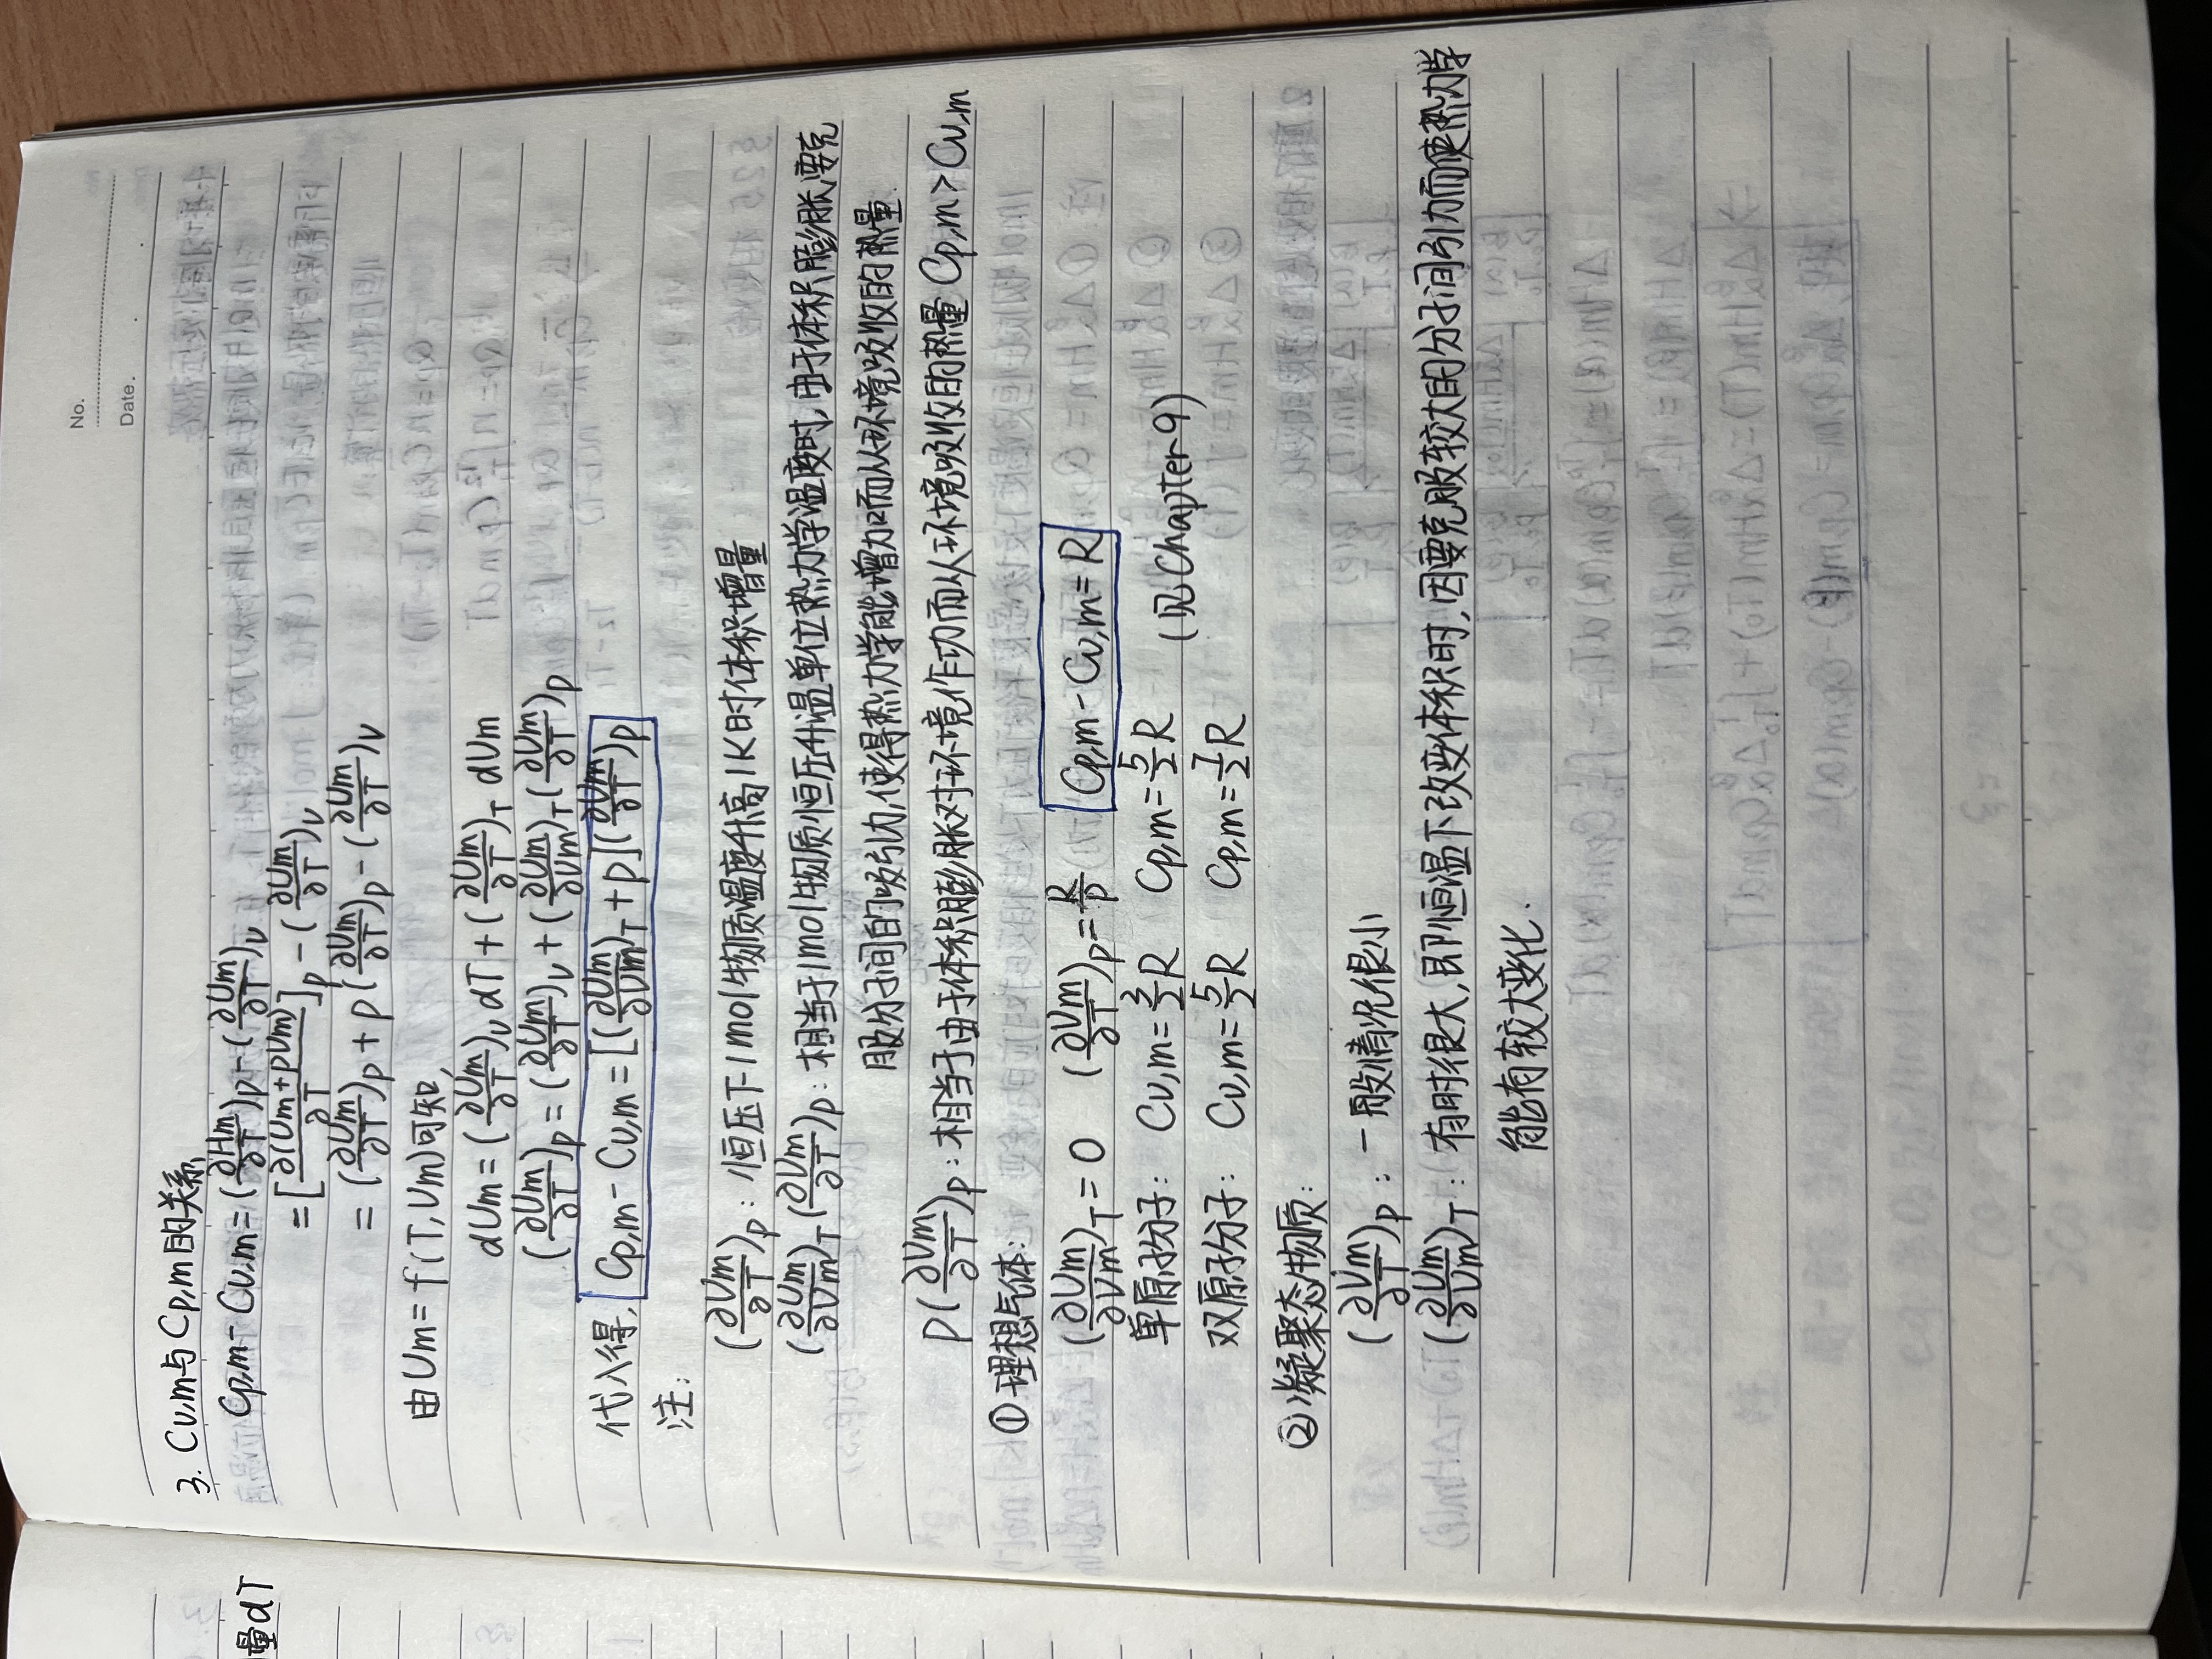 No.
Date.
量dT
3. Cv,m与Cp,m的关系
Cp,m - Cv,m = (∂Hm/∂T)p - (∂Um/∂T)v
= [∂(Um+pVm)/∂T]p - (∂Um/∂T)v
= (∂Um/∂T)p + p(∂Vm/∂T)p - (∂Um/∂T)v
由Um = f(T,Vm)可知,
dUm = (∂Um/∂T)v dT + (∂Um/∂T)T dVm
(∂Um/∂T)p = (∂Um/∂T)v + (∂Um/∂Vm)T (∂Vm/∂T)p
代入得, Cp,m - Cv,m = [(∂Um/∂Vm)T + p](∂Vm/∂T)p
注:
(∂Vm/∂T)p: 恒压下1mol物质温度升高1K时体积增量
(∂Um/∂Vm)T (∂Vm/∂T)p: 相当于1mol物质恒压升温单位热力学温度时,由于体积膨胀,要克
服分子间的吸引力,使得热力学能增加而从环境吸收的热量.
p(∂Vm/∂T)p: 相当于由于体积膨胀对环境作功而从环境吸收的热量 Cp,m > Cv,m
①理想气体:
(∂Um/∂Vm)T = 0 (∂Vm/∂T)p = R/p Cp,m - Cv,m = R
单原子分子: Cv,m = 3/2 R Cp,m = 5/2 R (见Chapter9)
双原子分子: Cv,m = 5/2 R Cp,m = 7/2 R
②凝聚态物质:
(∂Vm/∂T)p: 一般情况很小
(∂Um/∂Vm)T: 有时很大,即恒温下改变体积时,因要克服较大的分子间引力而使热力学
能有较大变化.